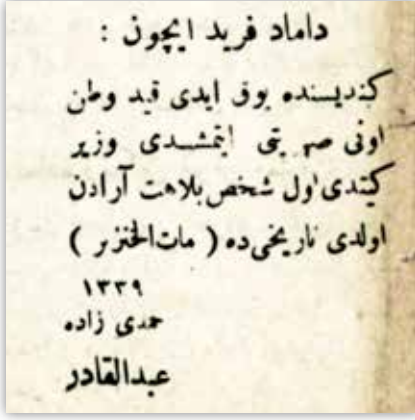 داماد فرید ایچون :
کندیسنده یوق ایدی قید وطن
اونی صهریتی ایتمشدی وزیر
کیتدی اول شخص بلاهت آرادن
اولدی تاریخی ده ( مات‌الخنزیر )
١٣٣٩
حمدی زاده
عبدالقادر